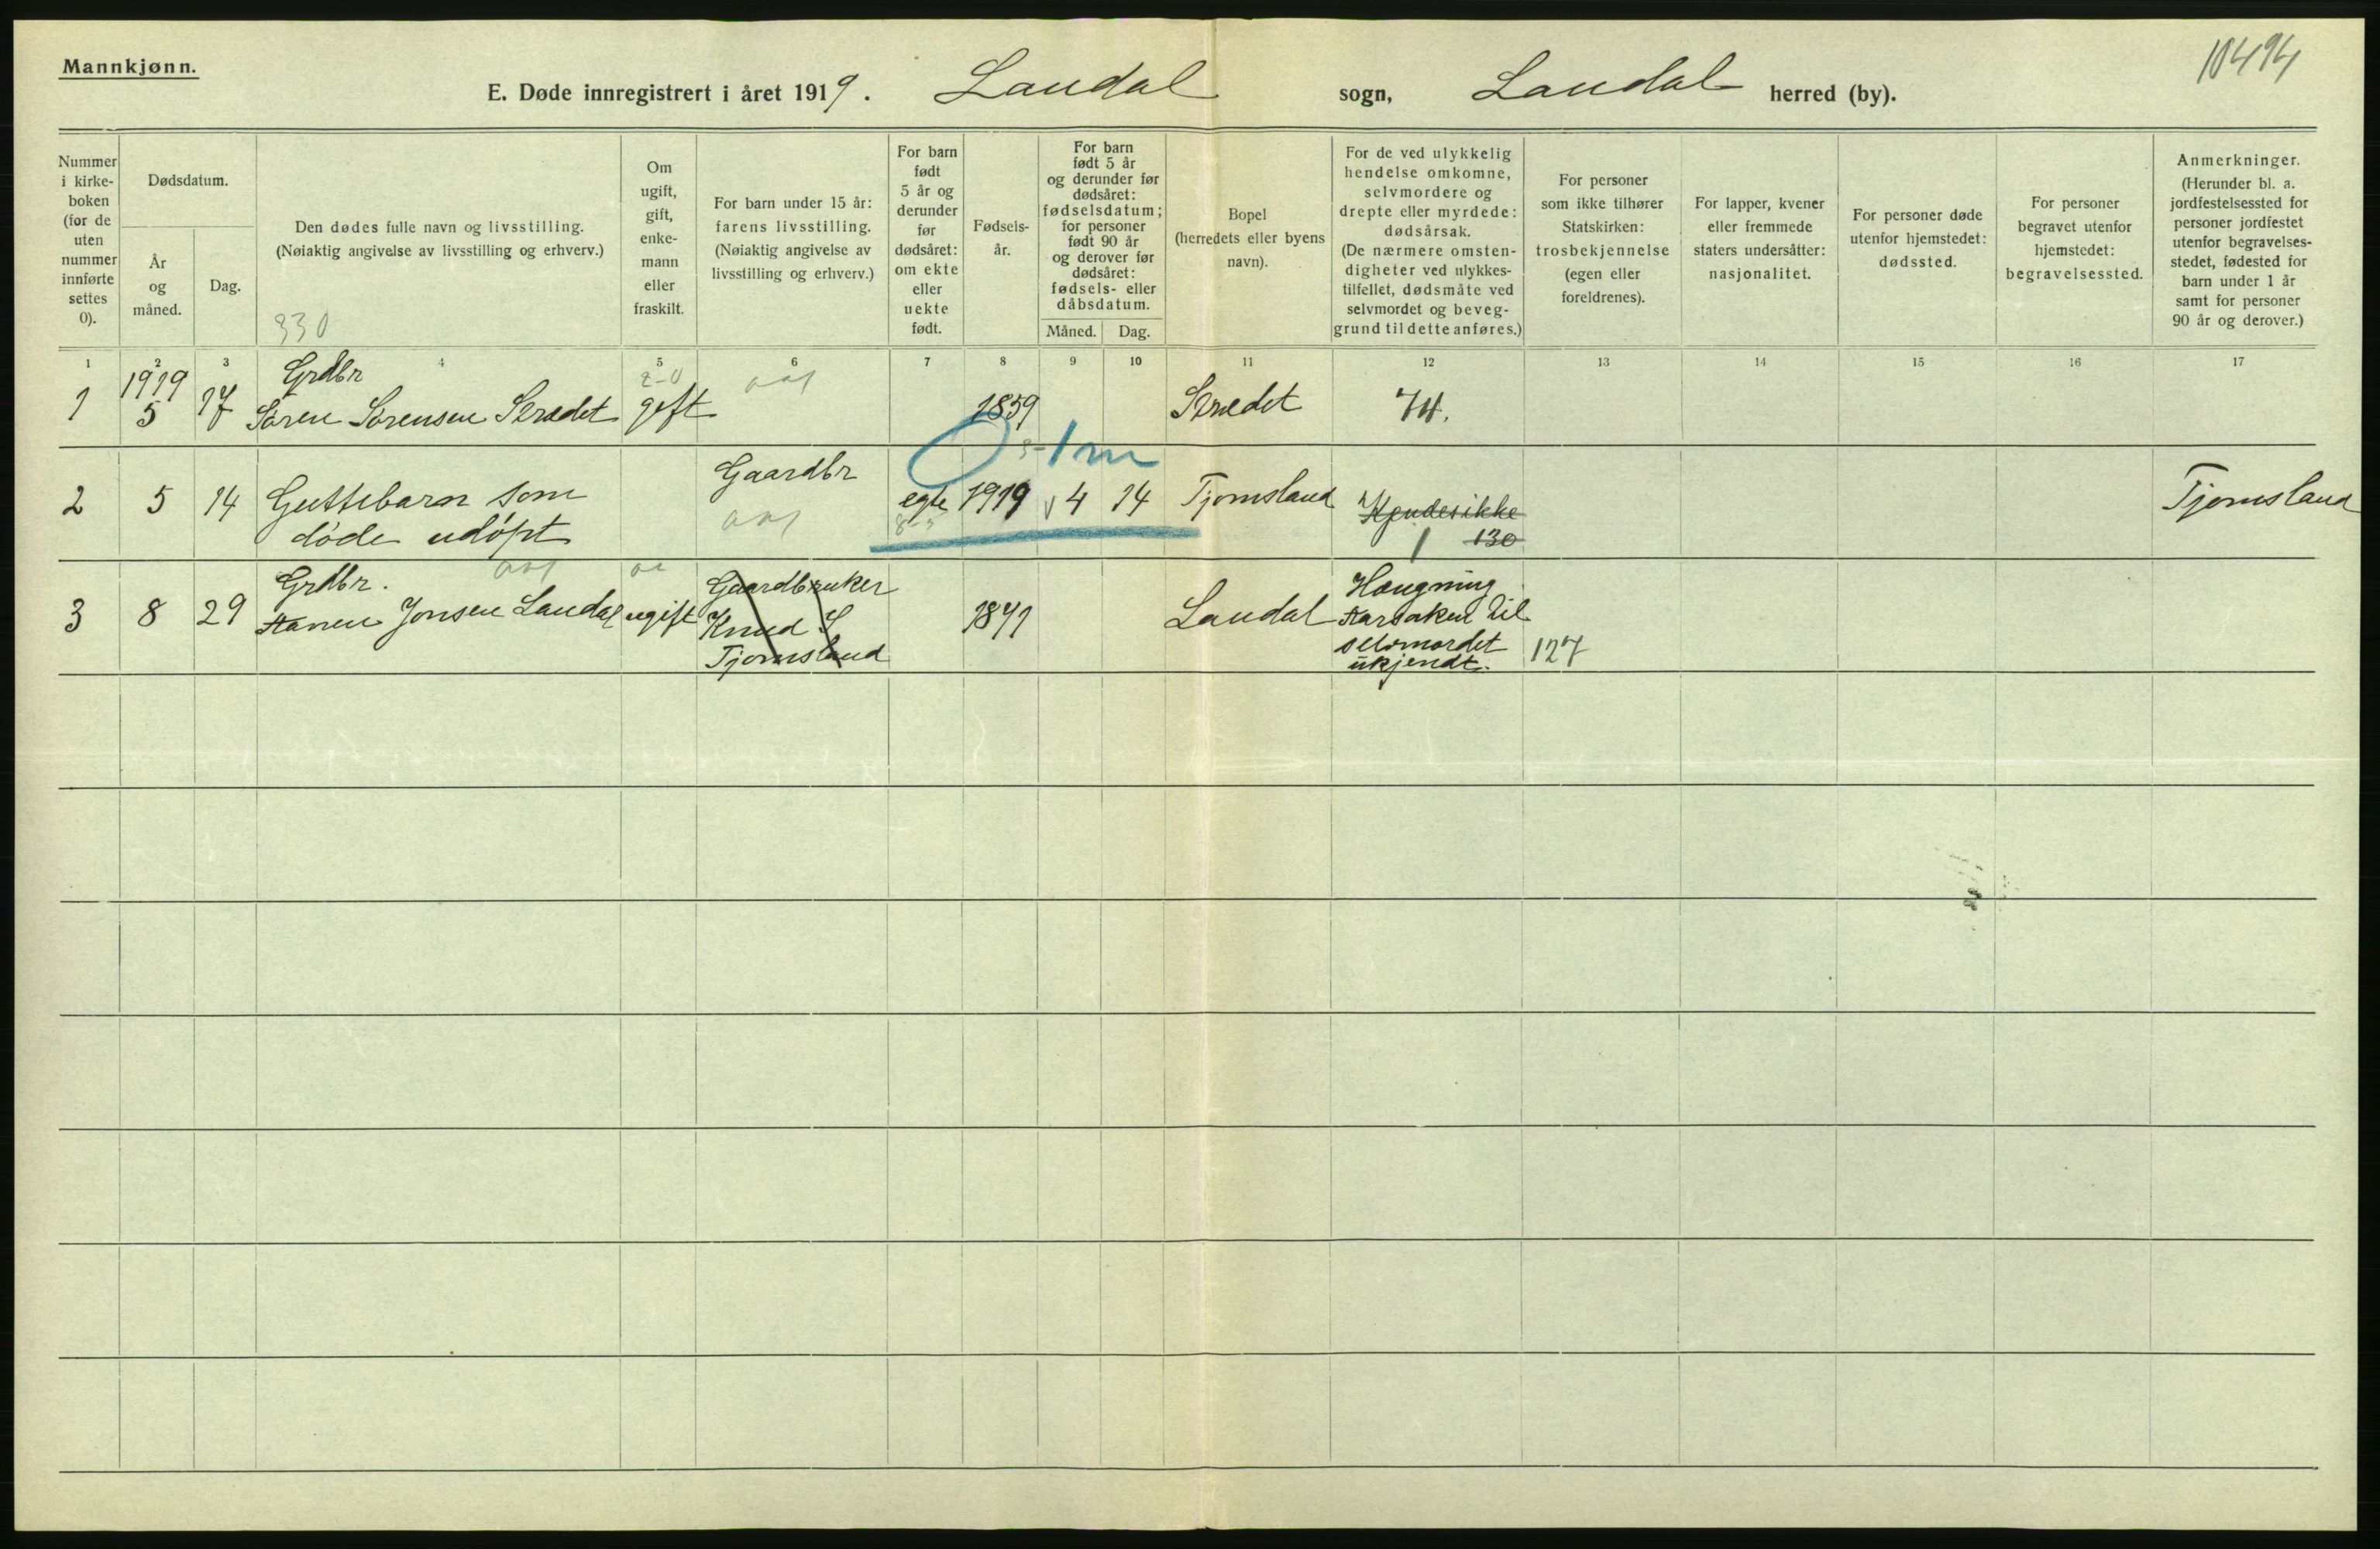 Mannkjønn.
10494
E. Døde innregistrert i året 1919. Laudal sogn, Laudal herred (by).
Nummer i kirke- boken (for de uten nummer innførte settes 0).
Dødsdatum.
År og måned.
Dag.
Den dødes fulle navn og livsstilling.
(Nøiaktig angivelse av livsstilling og erhverv.)
330
Om ugift, gift, enke- mann eller fraskilt.
For barn under 15 år: farens livsstilling. (Nøiaktig angivelse av livsstilling og erhverv.)
For barn født 5 år og derunder før dødsåret: om ekte eller uekte født.
Fødsels- år.
For barn født 5 år og derunder før dødsåret: fødselsdatum; for personer født 90 år og derover før dødsåret: fødsels- eller dåbsdatum.
Måned. Dag.
Bopel (herredets eller byens navn).
For de ved ulykkelig hendelse omkomne, selvmordere og drepte eller myrdede: dødsårsak. (De nærmere omsten- digheter ved ulykkes- tilfellet, dødsmåte ved selvmordet og beveg- grund til dette anføres.)
For personer som ikke tilhører Statskirken: trosbekjennelse (egen eller foreldrenes).
For lapper, kvener eller fremmede staters undersåtter: nasjonalitet.
For personer døde utenfor hjemstedet: dødssted.
For personer begravet utenfor hjemstedet: begravelsessted.
Anmerkninger. (Herunder bl. a. jordfestelsessted for personer jordfestet utenfor begravelses- stedet, fødested for barn under 1 år samt for personer 90 år og derover.)
1 2 3 4 5 6 7 8 9 10 11 12 13 14 15 16 17
1919 Grdbr
1 5 17 Søren Sørensen gift 1859 74.
1 m
Gaardbr
2 5 14 Guttebarn som egte 1919 4 14 Tjomsland Kjendes ikke Tjomsland
døde udøpt 1 130
Grdbr. Gaardbruker Hængning
3 8 29 Jonsen Laudal ugift Knud S 1841 Laudal Aarsaken til
Tjomsland selvmordet 127
ukjendt.